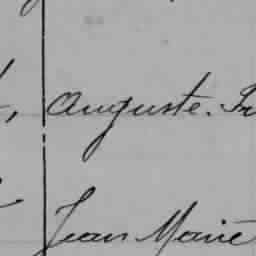 Auguste. Fr
Jean Marie